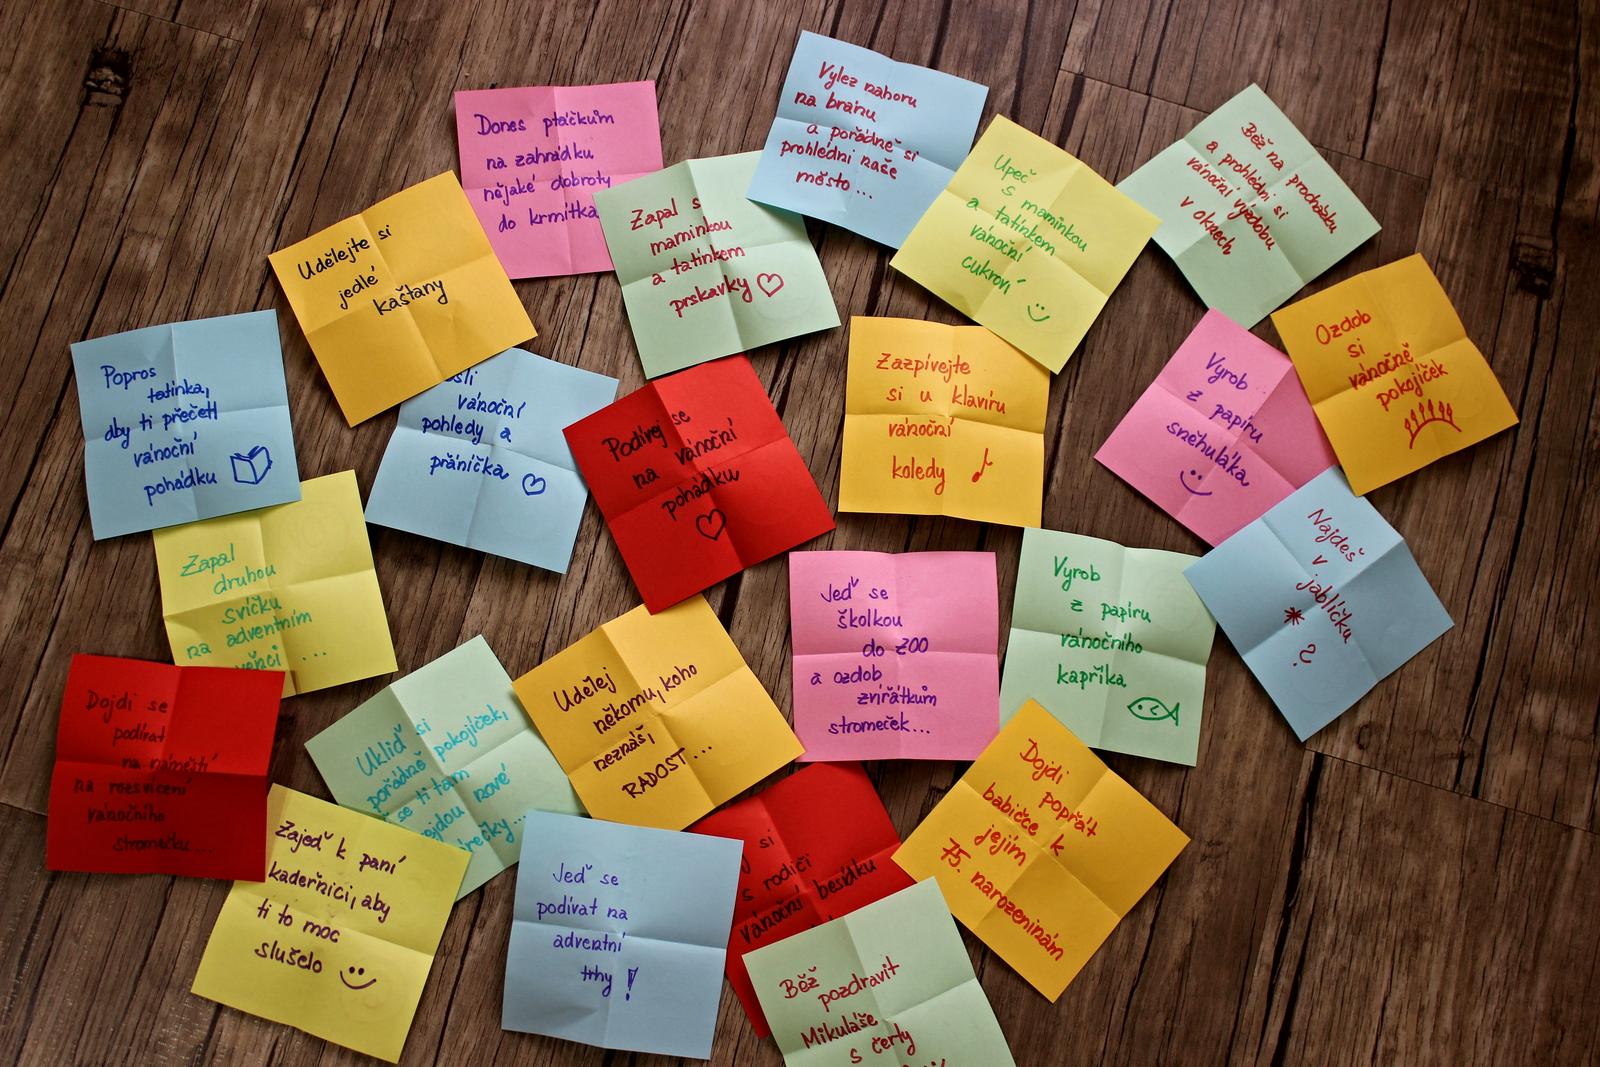 Dones ptáčkům
na zahrádku
nějaké dobroty
do krmítka
Vylez nahoru
na bránu
a pořádně si
prohlédni naše
město...
Běž na procházku
a prohlédni si
vánoční výzdobu
v oknech
Upeč
s maminkou
a tatínkem
vánoční
cukroví
Zapal s
maminkou
a tatínkem
prskavky
Udělejte si
jedlé
kaštany
Popros
tatínka,
aby ti přečetl
vánoční
pohádku
vánoční
pohledy a
přáníčka
Podívej se
na vánoční
pohádku
Zazpívejte
si u klavíru
vánoční
koledy
Vyrob
z papíru
sněhuláka
Ozdob
si
vánočně
pokojíček
Najdeš
v
jablíčku
*
?
Zapal
druhou
svíčku
na adventním
věnci ...
Jeď se
školkou
do ZOO
a ozdob
zvířátkům
stromeček...
Vyrob
z papíru
vánočního
kapříka
Dojdi se
podívat
na náměstí
na rozsvícení
vánočního
stromečku...
Ukliď si
pořádně pokojíček,
se ti tam
nové
Udělej
někomu, koho
neznáš
RADOST...
Dojdi
popřát
babičce k
jejím
75. narozeninám
Zajeď k paní
kadeřnici, aby
ti to moc
slušelo
Jeď se
podívat na
adventní
trhy !
si
s rodiči
vánoční besídku
Běž
pozdravit
Mikuláše
s čerty